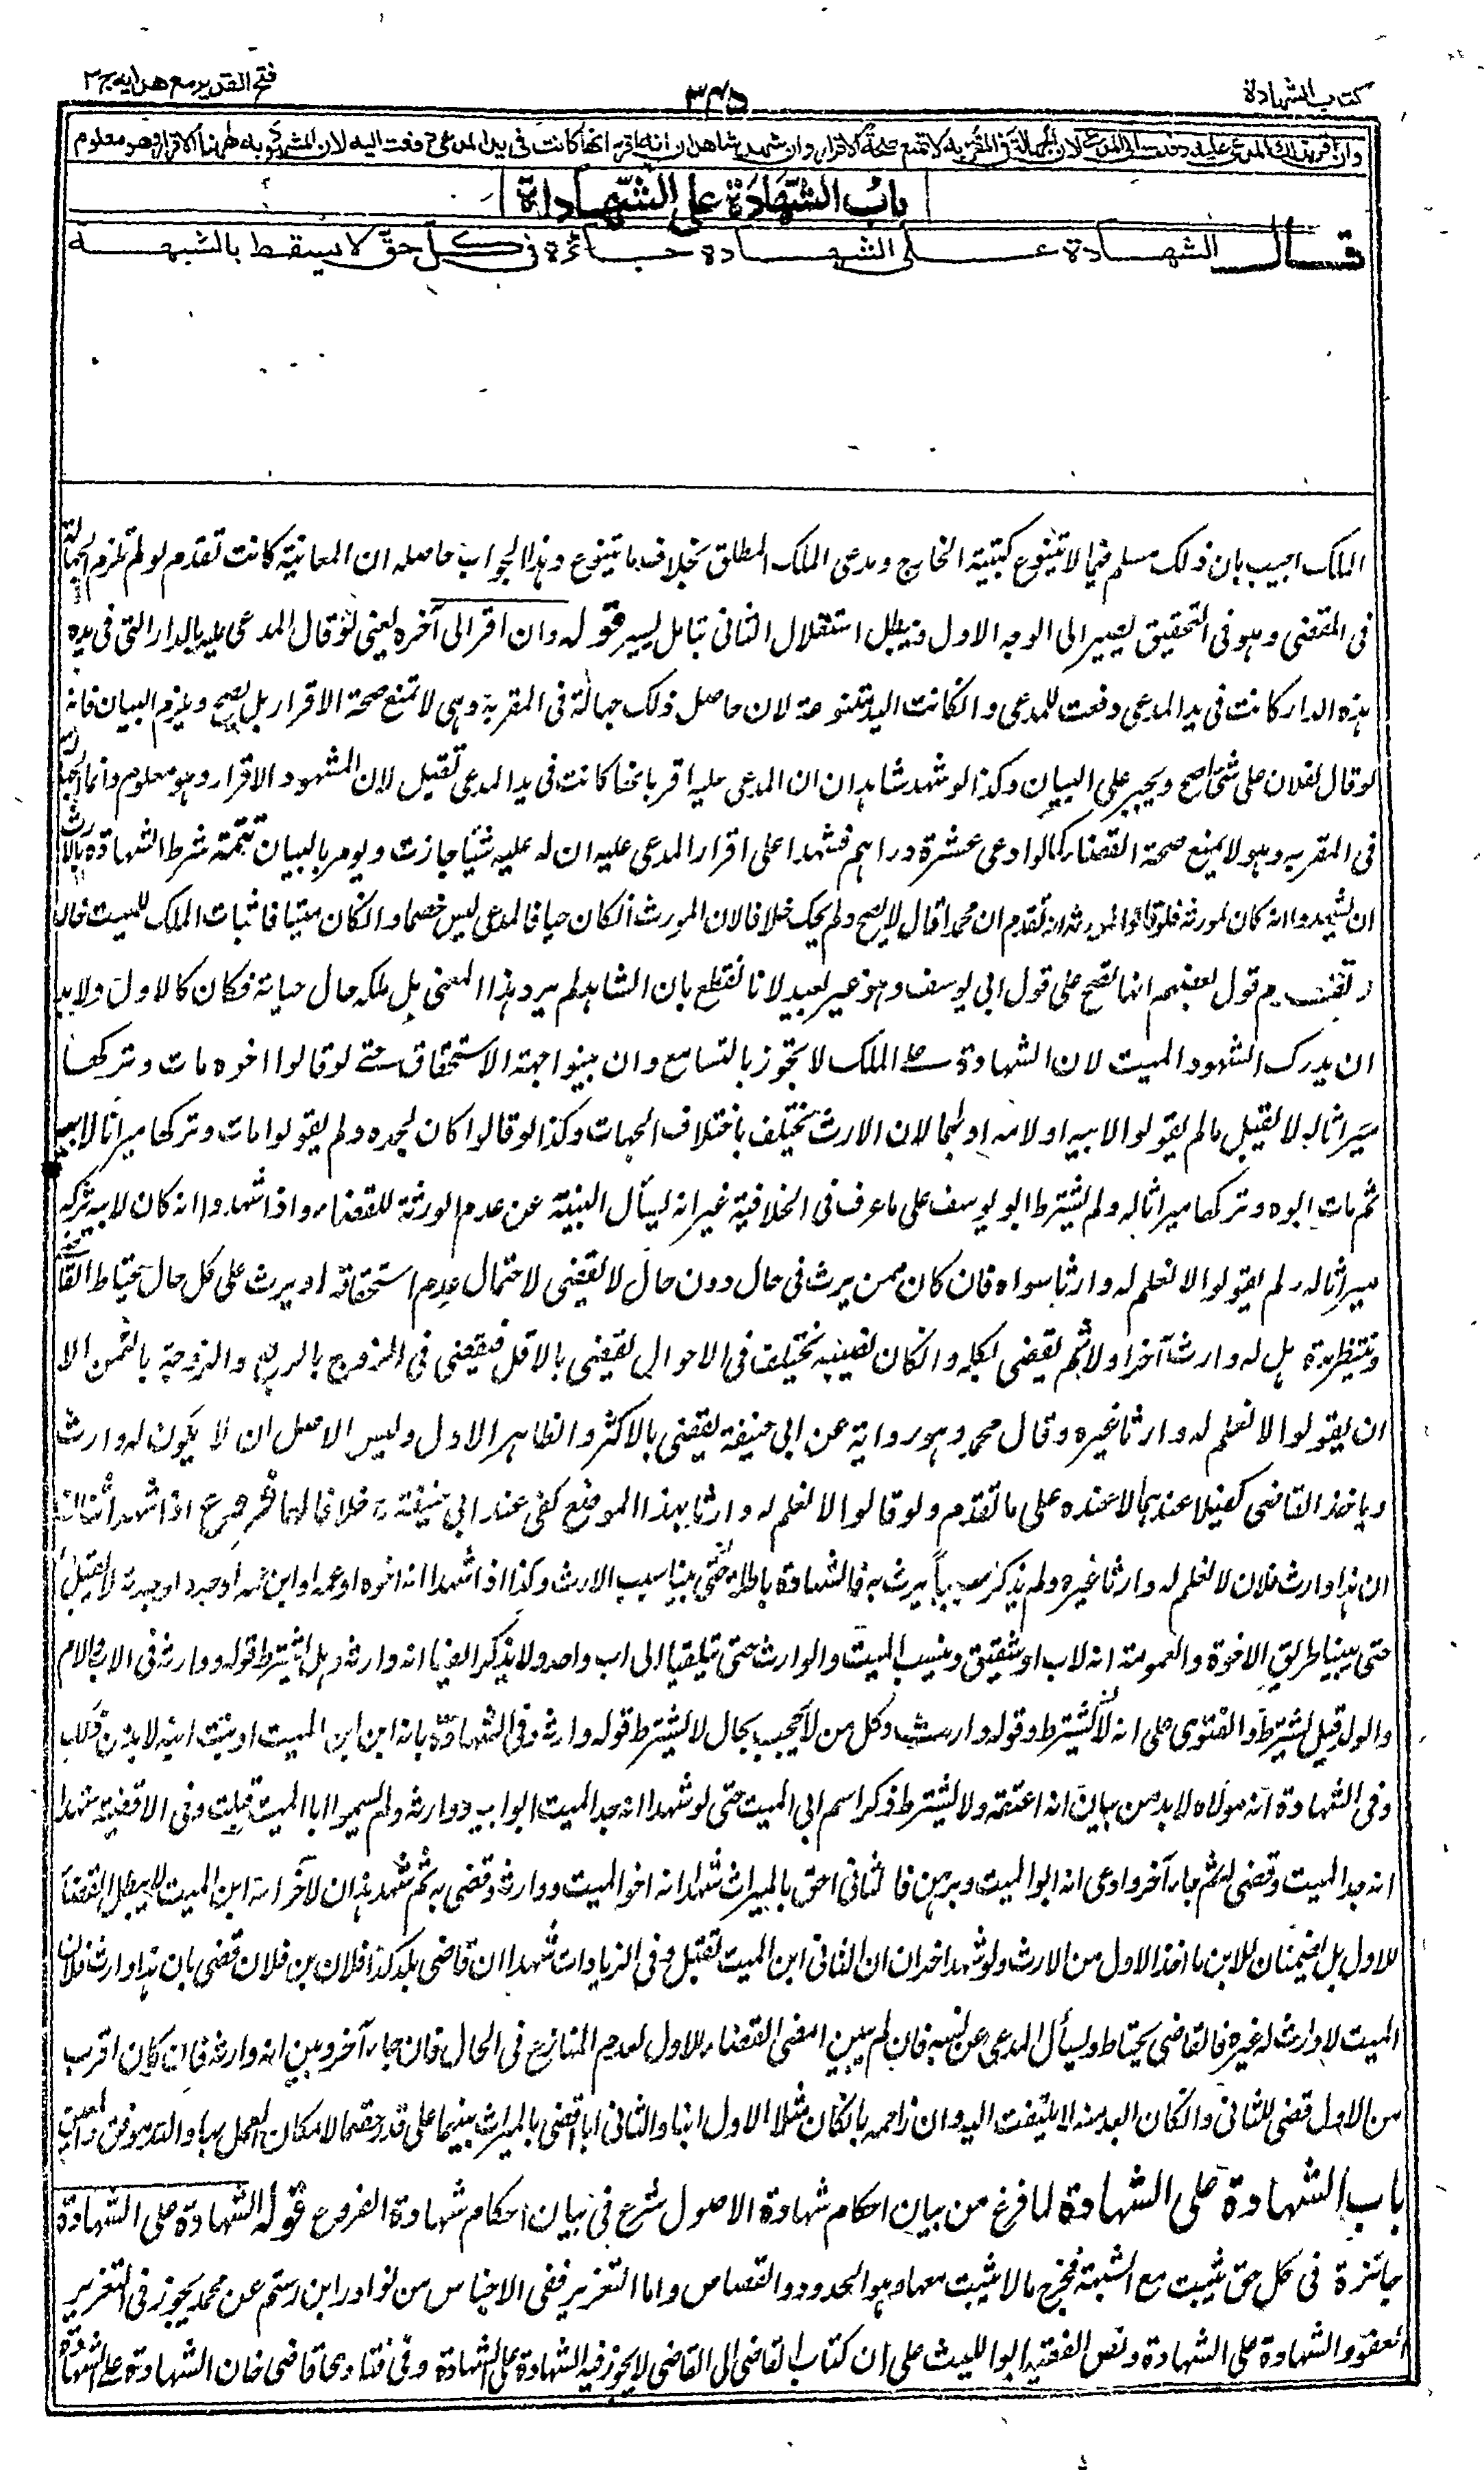 كتاب الشهادة
٣٤٥
فتح القدير مع هدايه ج٣
وان اقر بذلك المدعى عليه دفعت الى المدعى لان الجهالة فى المقر به لا تمنع صحة الاقرار وان شهد شاهدان انه اقر انها كانت فى يد المدعى دفعت اليه لان المشهود به ههنا الاقرار وهو معلوم
باب الشهادة على الشهادة
قال الشهادة على الشهادة جائزة فى كل حق لا يسقط بالشبهة
الملك اجيب بان ذلك مسلم فيما لا يتنوع كبينة الخارج ومدعى الملك المطلق بخلاف ما يتنوع وهذا الجواب حاصله ان المعاينة كانت تقدم لو لم تلزم الجهالة
فى المقضى وهو فى التحقيق يصير الى الوجه الاول فيبطل استقلال الثانى بتامل يسير قوله وان اقر الى آخره يعنى لو قال المدعى عليه بالدار التى فى يده
هذه الدار كانت فى يد المدعى دفعت للمدعى وان كانت اليد متنوعة لان حاصل ذلك جهالة فى المقر به وهى لا تمنع صحة الاقرار بل يصح ويلزم البيان فانه
لو قال لفلان على شئ صح ويجبر على البيان وكذا لو شهد شاهدان ان المدعى عليه اقر بانها كانت فى يد المدعى تقبل لان المشهود الاقرار وهو معلوم وانما الجهالة
فى المقر به وهو لا يمنع صحة القضاء كما لو ادعى عشرة دراهم فشهدا على اقرار المدعى عليه ان له عليه شيئا جازت ويومر بالبيان تتمة شرط الشهادة بالارث
ان يشهدوا انه كان لمورثه فلو قالوا لمورثه انه تقدم ان محمدا قال لا يصح ولم يحك خلافا لان المورث ان كان حيا فالمدعى ليس خصما وان كان ميتا فاثبات الملك للميت محال
وتقدم قول بعضهم انها تصح على قول ابى يوسف وهو غير بعيد لانا نقطع بان الشاهد لم يرد هذا المعنى بل ملكه حال حياته فكان كالاول ولا بد
ان يدرك الشهود الميت لان الشهادة على الملك لا تجوز بالتسامع وان يبينوا جهة الاستحقاق حتى لو قالوا اخوه مات وتركها
ميراثا له لا تقبل ما لم يقولوا لابيه او لامه او لهما لان الارث يختلف باختلاف الجهات وكذا لو قالوا كان لجده ولم يقولوا مات وتركها ميراثا لابيه
ثم مات ابوه وتركها ميراثا له ولم يشترط ابو يوسف على ما عرف فى الخلافية غير انه يسأل البينة عن عدم الورثة للقضاء واذا شهدوا انه كان لابيه تركه
ميراثا له ولم يقولوا لا نعلم له وارثا سواه فان كان ممن يرث فى حال دون حال لا يقضى لاحتمال عدم استحقاقه او يرث على كل حال يحتاط القاضى
وينتظر مدة هل له وارث آخر او لا ثم يقضى بكله وان كان نصيبه يختلف فى الاحوال يقضى بالاقل فيقضى فى الزوج بالربع والزوجة بالثمن الا
ان يقولوا لا نعلم له وارثا غيره وقال محمد وهو رواية عن ابى حنيفة يقضى بالاكثر والظاهر الاول وليس الاصل ان لا يكون له وارث
وياخذ القاضى كفيلا عندهما لا عنده على ما تقدم ولو قالوا لا نعلم له وارثا بهذا الموضع كفى عند ابى حنيفة خلافا لهما فروع اذا شهد اثنان
ان هذا وارث فلان لا نعلم له وارثا غيره ولم يذكر سببا يرث به فالشهادة باطلة حتى يبينا سبب الارث وكذا اذا شهدا انه اخوه او عمه او ابن عمه او جده او جدته لا تقبل
حتى يبينا طريق الاخوة والعمومة انه لاب او شقيق وينسب الميت والوارث حتى يلتقيا الى اب واحد ولا يذكر ايضا انه وارثه وهل يشترط قوله ووارثه فى الاب والام
والولد قيل يشترط والفتوى على انه لا يشترط وقوله وارث وكل من لا يحجب بحال لا يشترط قوله وارثه وفى الشهادة بانه ابن ابن الميت او بنت ابنه لا بد من ذلك
وفى الشهادة انه مولاه لا بد من بيان انه اعتقه ولا يشترط ذكر اسم ابى الميت حتى لو شهدا انه جد الميت ابو ابيه ووارثه ولم يسموا ابا الميت قبلت وفى الاقضية شهدا
انه جد الميت وقضى له ثم جاء آخر وادعى انه ابو الميت وبرهن فالثانى احق بالميراث شهدا انه اخو الميت ووارثه وقضى به ثم شهد هذان لآخر انه ابن الميت لا يبطل القضاء
للاول بل يضمنان للابن ما اخذ الاول من الارث ولو شهد اخران ان الثانى ابن الميت تقبل وفى الزيادات شهدا ان قاضى بلد كذا فلان بن فلان قضى بان هذا وارث فلان
الميت لا وارث له غيره فالقاضى يحتاط ويسأل المدعى عن نسبه فان لم يبين امضى القضاء للاول لعدم المنازع فى الحال فان جاء آخر وبين انه وارثه فان كان اقرب
من الاول قضى للثانى وان كان ابعد منه لا يلتفت اليه وان زاحمه بان كان مثلا الاول ابنا والثانى ابا قضى بالميراث بينهما على قدر حقهما لامكان العمل بهما والله موفق ومعين
باب الشهادة على الشهادة لما فرغ من بيان احكام شهادة الاصول شرع فى بيان احكام شهادة الفروع قوله الشهادة على الشهادة
جائزة فى كل حق يثبت مع الشبهة فخرج ما لا يثبت معها وهو الحدود والقصاص واما التعزير ففى الاجناس من نوادر ابن رستم عن محمد يجوز فى التعزير
العفو والشهادة على الشهادة ونص الفقيه ابو الليث على ان كتاب القاضى الى القاضى لا يجوز فيه الشهادة على الشهادة وفى فتاوى قاضى خان الشهادة على الشهادة